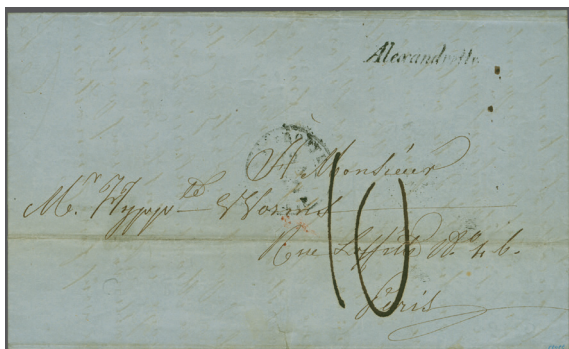 Alexandrette
A Monsieur
Mr. Hyppte Worms
Rue Laffitte No 46.
10
Paris